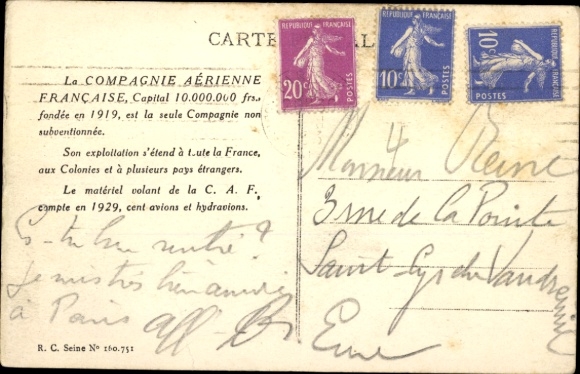 CARTE
REPUBLIQUE FRANÇAISE
20c
POSTES
REPUBLIQUE FRANÇAISE
10c
POSTES
REPUBLIQUE FRANÇAISE
10c
POSTES
La COMPAGNIE AÉRIENNE
FRANÇAISE, Capital 10.000.000 frs.,
fondée en 1919, est la seule Compagnie non
subventionnée.
Son exploitation s'étend à toute la France,
aux Colonies et à plusieurs pays étrangers.
Le matériel volant de la C. A. F.
compte en 1929, cent avions et hydravions.
Es-tu bien rentré?
Je suis très bien arrivé
à Paris aff
R. C. Seine No 160.751
Monsieur
3 rue de la Pointe
Saint Cyr du Vaudreuil
Eure